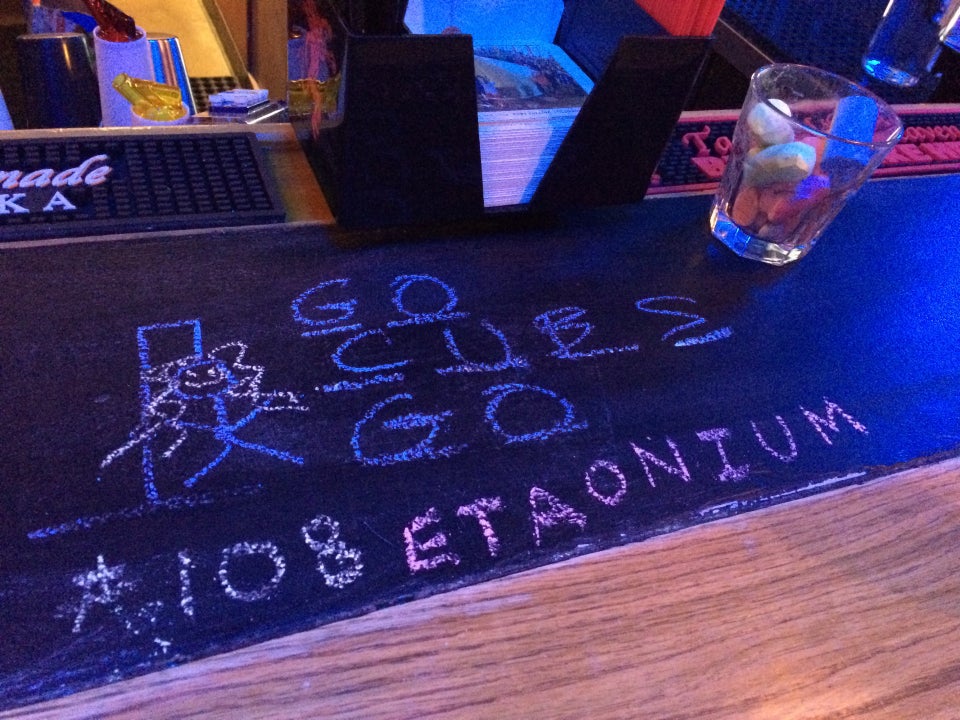 GO
CUBS
GO
*108 ETAONIUM
made
KA